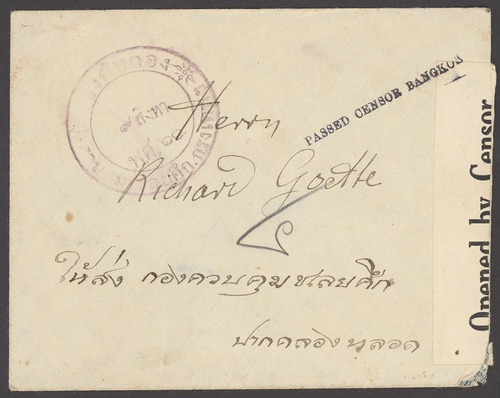 PASSED CENSOR BANGKOK
Herrn
Richard Goette
ให้ส่ง กองควบคุมชเลยศึก
ปากคลองหลอด
Opened by Censor